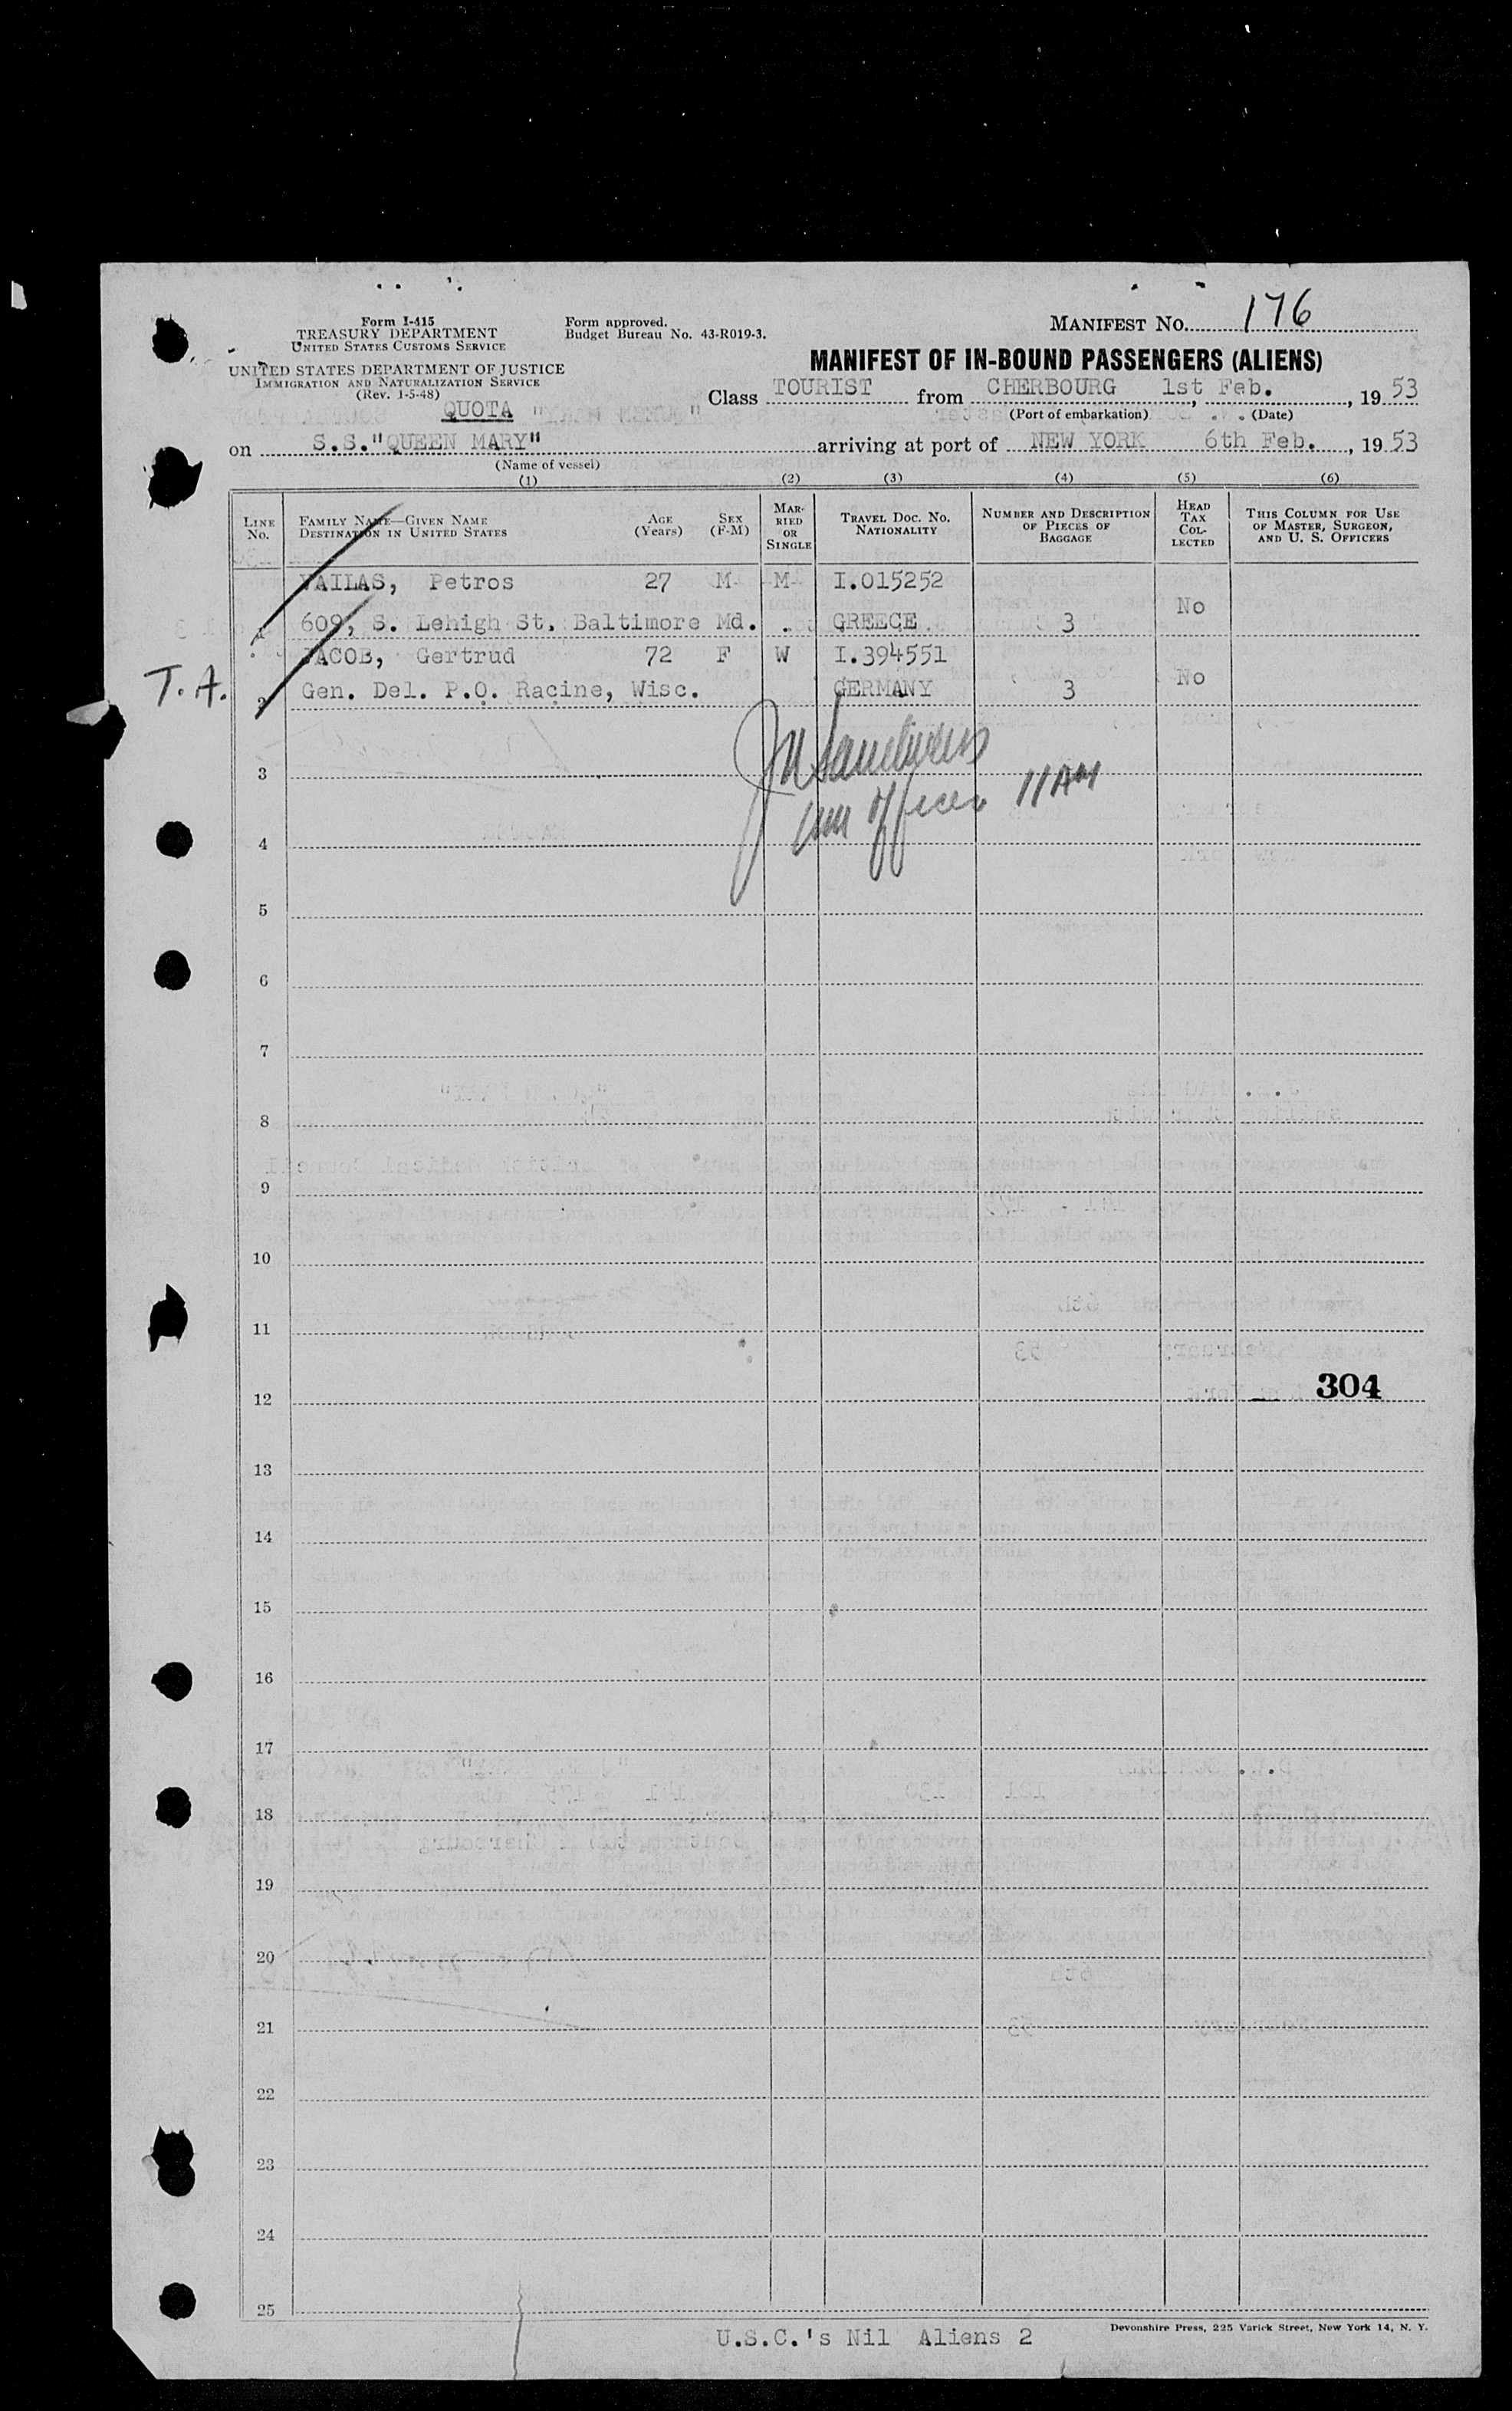 Form I-415
TREASURY DEPARTMENT
UNITED STATES CUSTOMS SERVICE
UNITED STATES DEPARTMENT OF JUSTICE
IMMIGRATION AND NATURALIZATION SERVICE
(Rev. 1-5-48)
QUOTA
Form approved.
Budget Bureau No. 43-R019-3.
MANIFEST NO. 176
MANIFEST OF IN-BOUND PASSENGERS (ALIENS)
Class TOURIST from CHERBOURG 1st Feb. , 1953
(Port of embarkation) (Date)
on S.S."QUEEN MARY" arriving at port of NEW YORK 6th Feb. , 1953
(Name of vessel)
(1) (2) (3) (4) (5) (6)
LINE No. FAMILY NAME—GIVEN NAME DESTINATION IN UNITED STATES AGE (Years) SEX (F-M) MARRIED OR SINGLE TRAVEL DOC. NO. NATIONALITY NUMBER AND DESCRIPTION OF PIECES OF BAGGAGE HEAD TAX COLLECTED THIS COLUMN FOR USE OF MASTER, SURGEON, AND U. S. OFFICERS
VAILAS, Petros 27 M M I.015252
1 609, S. Lehigh St. Baltimore Md. GREECE 3 No
JACOB, Gertrud 72 F W I.394551
T.A. 2 Gen. Del. P.O. Racine, Wisc. GERMANY 3 No
3
Imm Officer 11AM
4
5
6
7
8
9
10
11
12 304
13
14
15
16
17
18
19
20
21
22
23
24
25
U.S.C.'s Nil Aliens 2
Devonshire Press, 225 Varick Street, New York 14, N. Y.